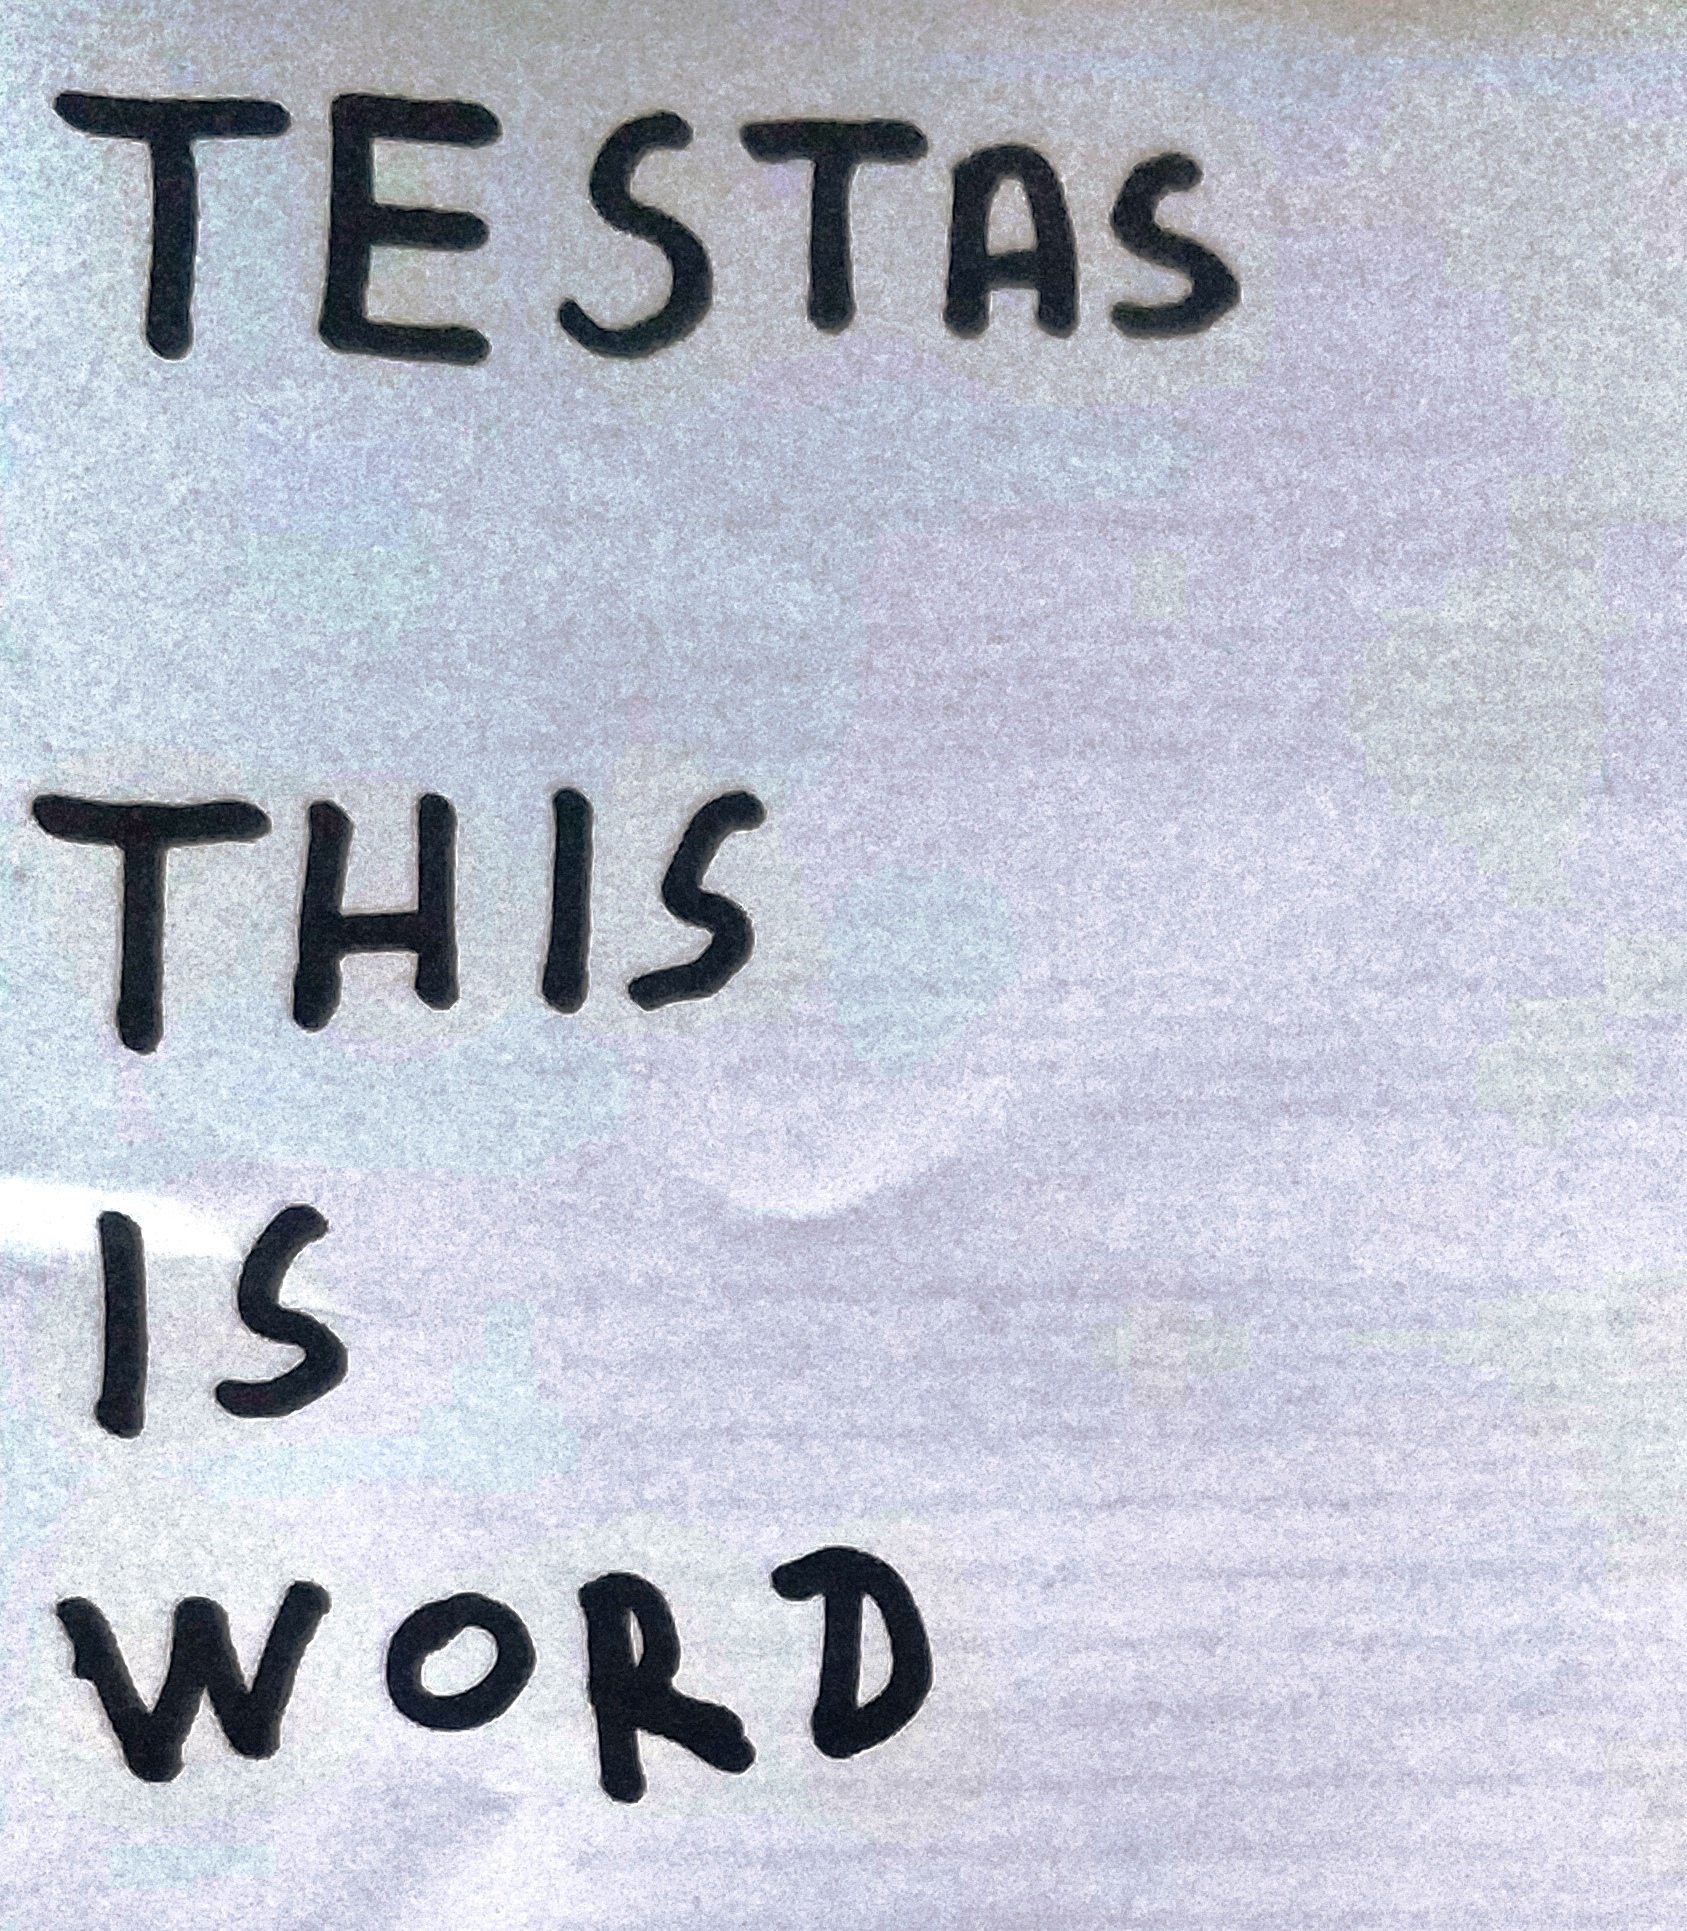 TESTAS
THIS
IS
WORD